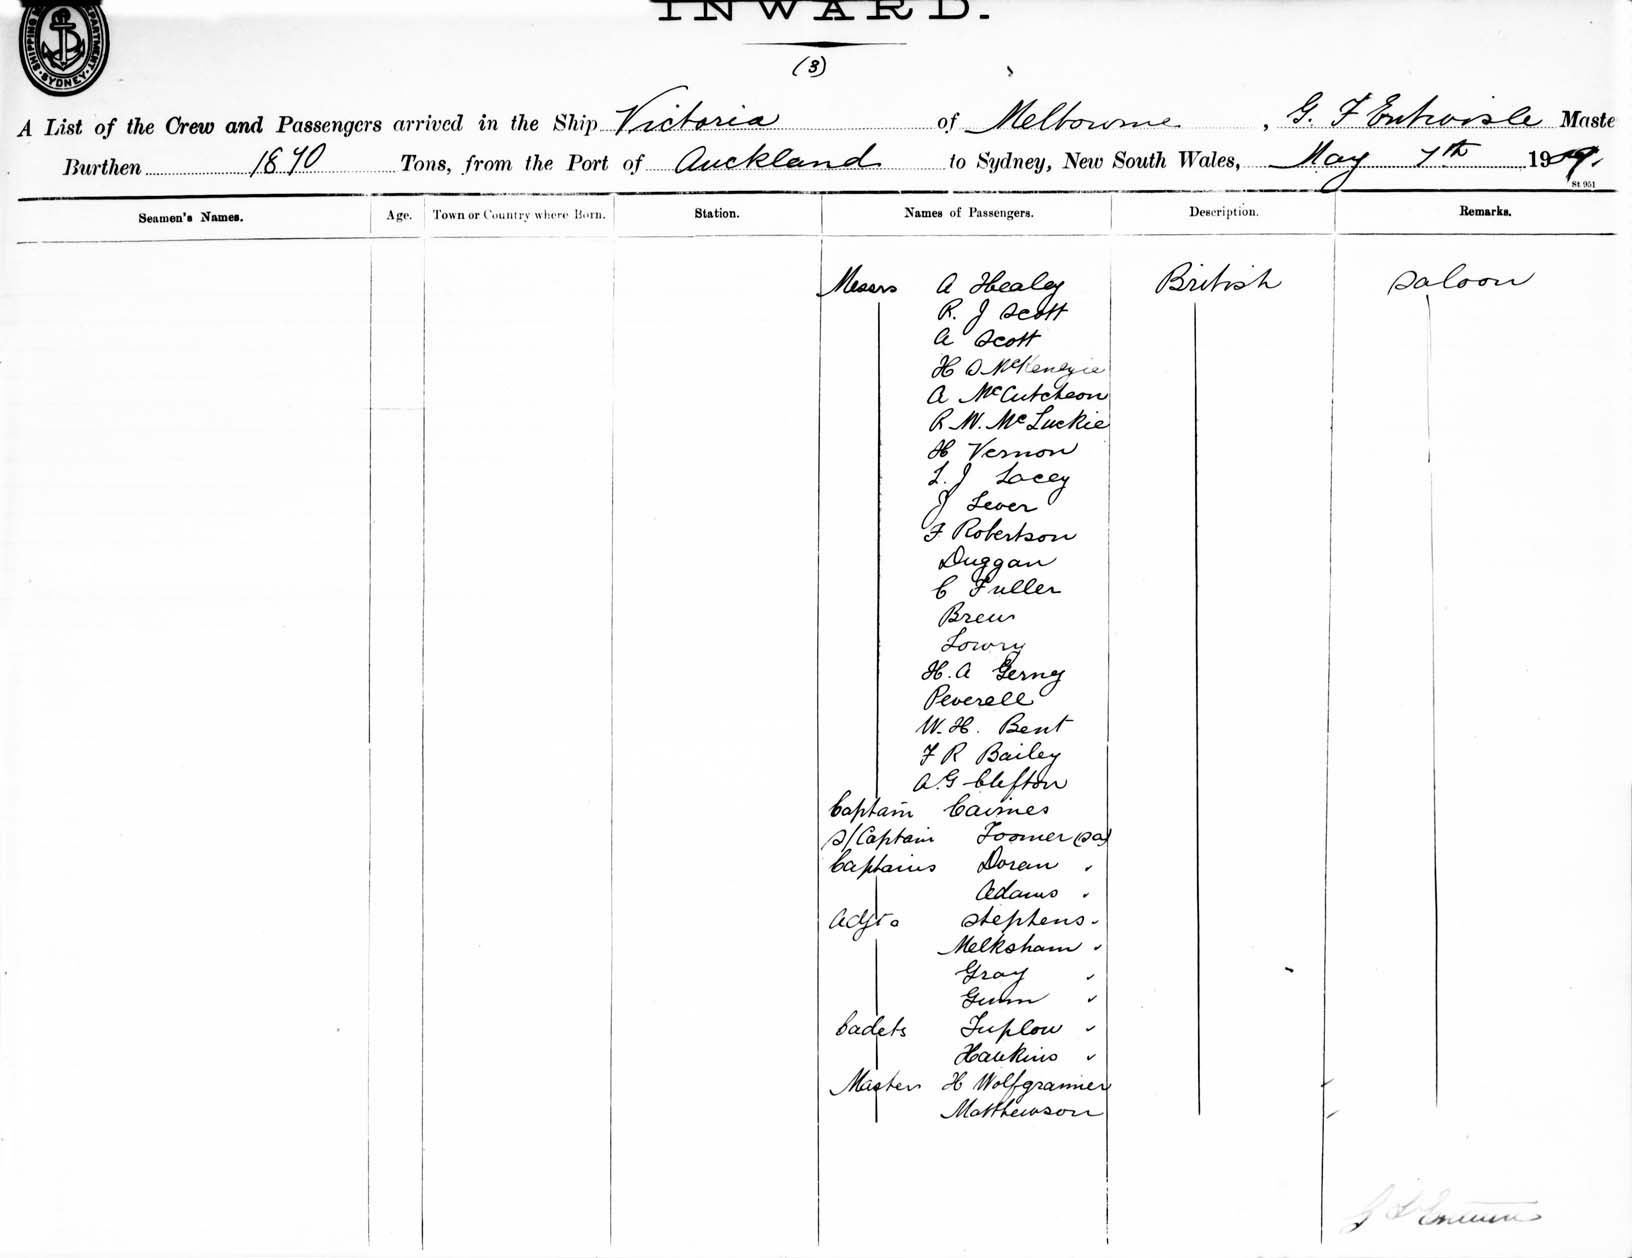 SHIPPING DEPARTMENT SYDNEY
INWARD.
(3)
A List of the Crew and Passengers arrived in the Ship Victoria of Melbourne, G. F Entwisle Maste
Burthen 1870 Tons, from the Port of Auckland to Sydney, New South Wales, May 7th 1909.
St 951
Seamen's Names. Age. Town or Country where Born. Station. Names of Passengers. Description. Remarks.
Messrs A Healey British Saloon
R. J Scott
A Scott
H D McKenzie
A McCutcheon
R. W. McLuckie
H Vernon
L. J Lacey
J Lever
F Robertson
Duggan
C Fuller
Brew
Lowry
H. A Gerny
Peverell
W. H. Bent
F R Bailey
A. G Clifton
Captain Cairnes
S/Captain Toomer (SA)
Captains Doran "
Adams "
Adjts Stephens "
Melksham "
Gray "
Gunn "
Cadets Tuplow "
Hawkins "
Masters H Wolfgramer
Matthewson